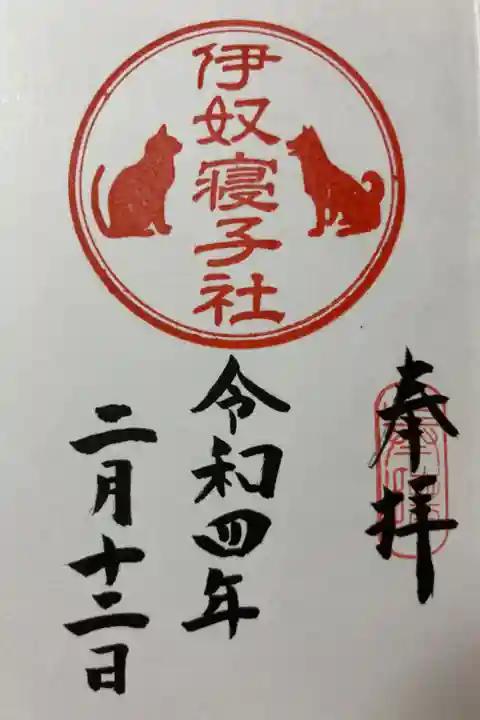 奉拝
伊奴寝子社
令和四年
二月十二日